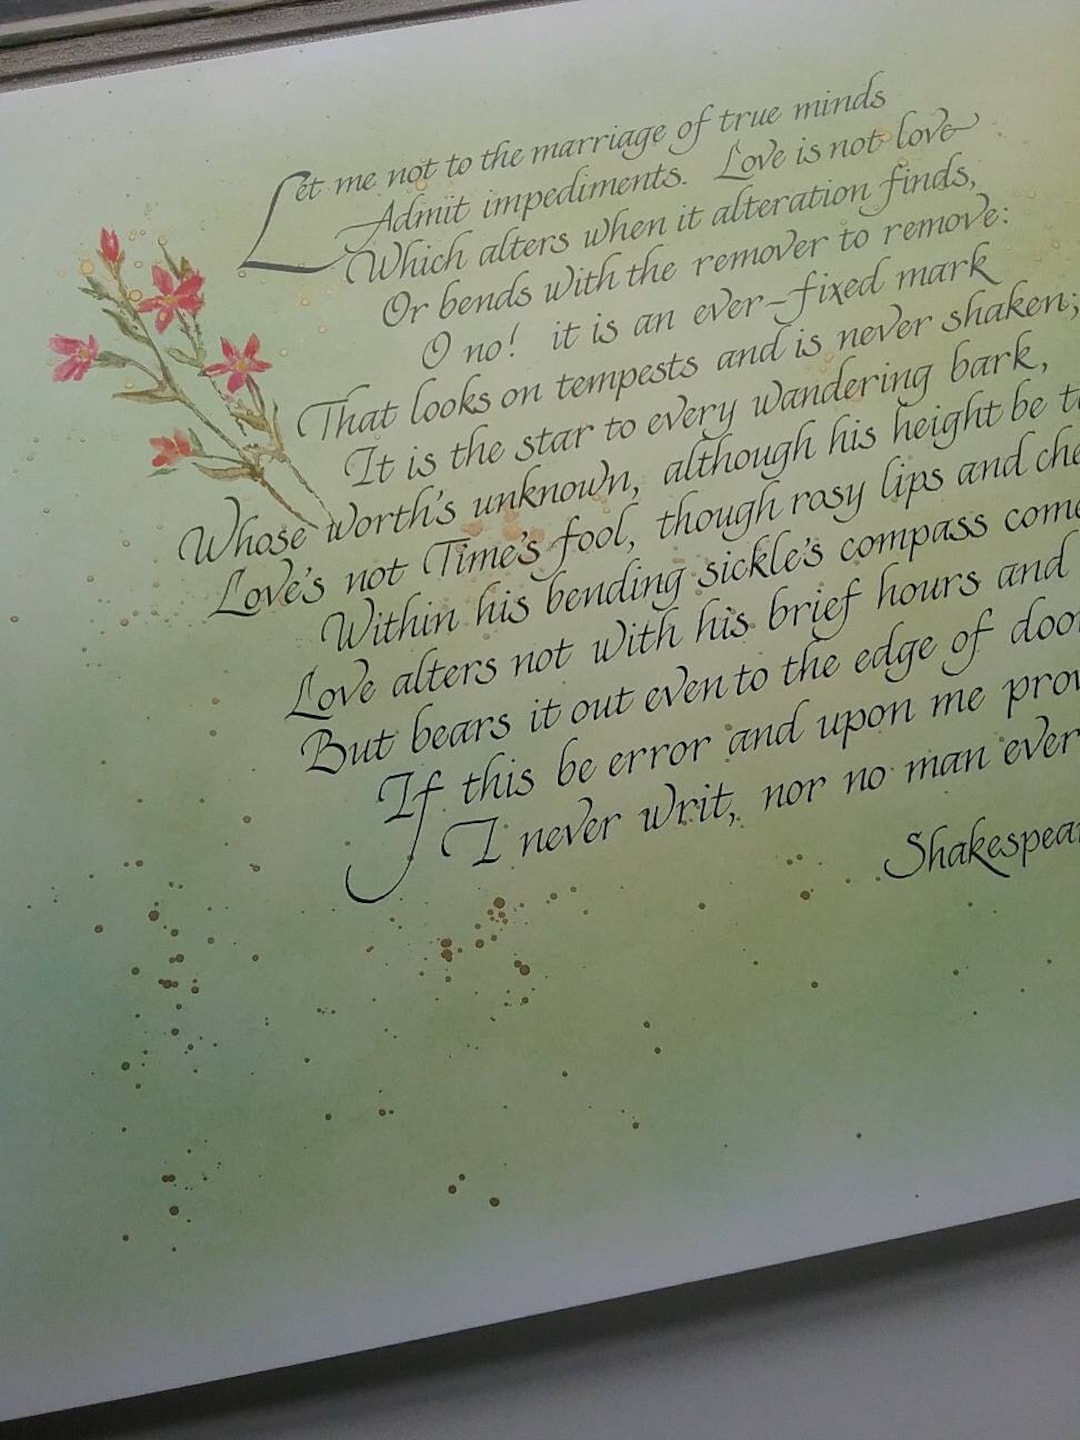 Let me not to the marriage of true minds
Admit impediments. Love is not love
Which alters when it alteration finds,
Or bends with the remover to remove:
O no! it is an ever-fixed mark
That looks on tempests and is never shaken;
It is the star to every wandering bark,
Whose worth's unknown, although his height be
Love's not Time's fool, though rosy lips and
Within his bending sickle's compass come
Love alters not with his brief hours and
But bears it out even to the edge of
If this be error and upon me
I never writ, nor no man ever